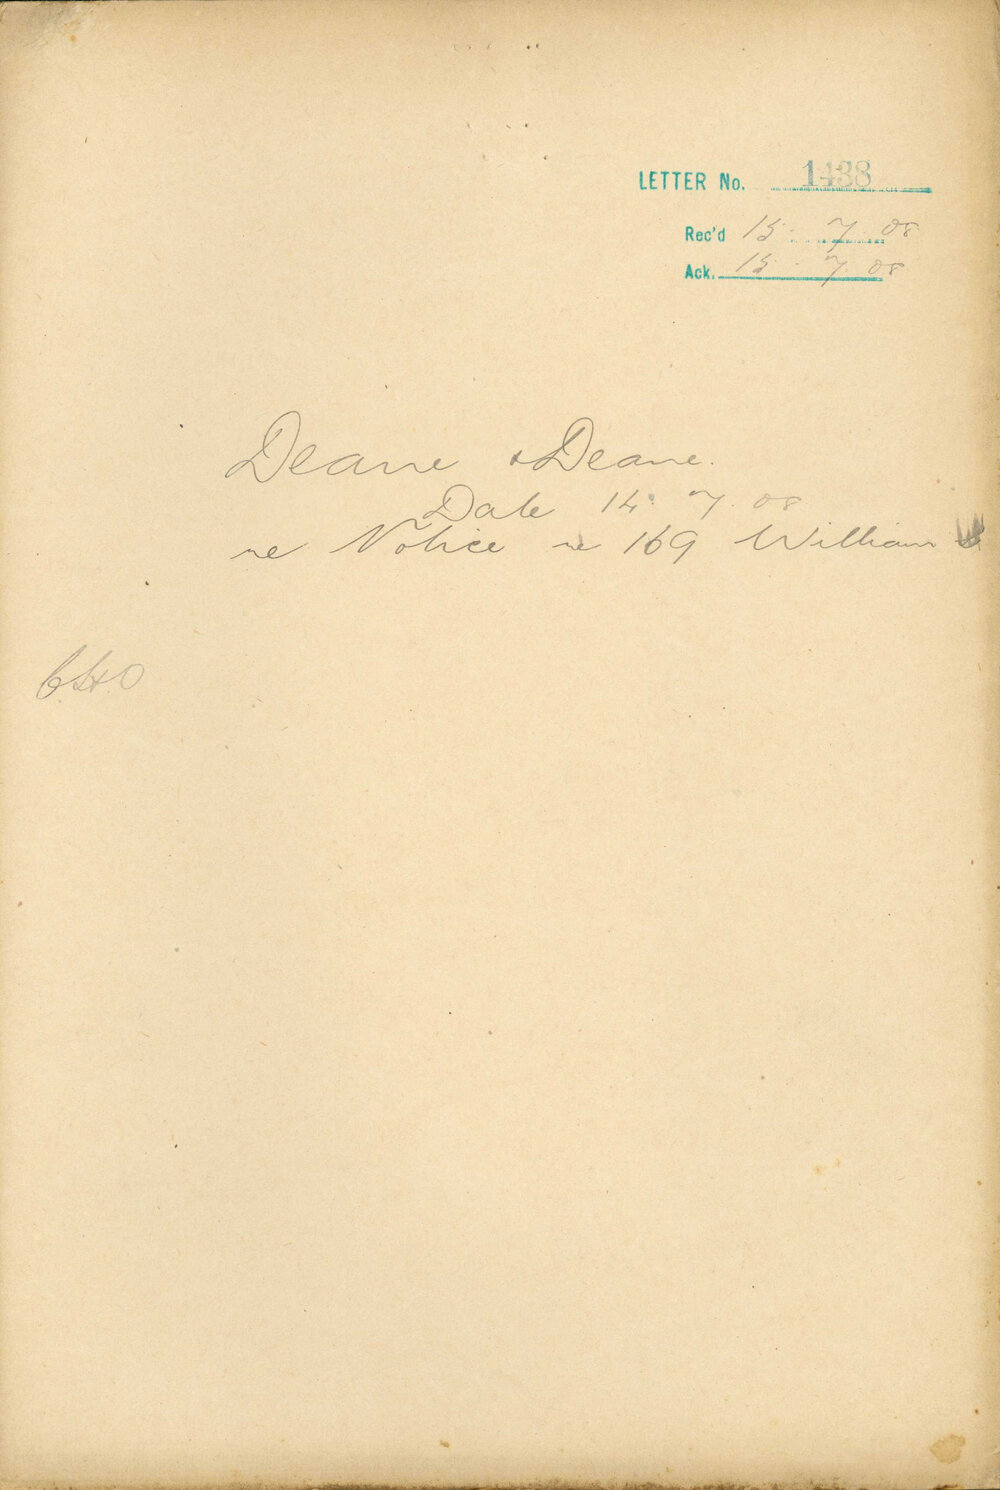 LETTER No. 1438
Rec'd 15. 7. 08
Ack. 15. 7. 08
Deane & Deane.
Date 14. 7. 08
re Notice re 169 William St
CHO